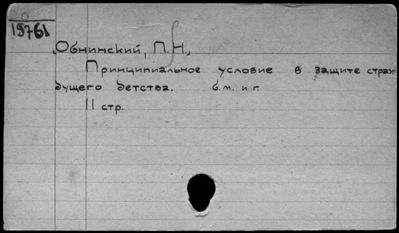 15761
Обнинский, П.Н.
Принципиальное условие в защите страж
дущего детства. б.м. и г.
11 стр.